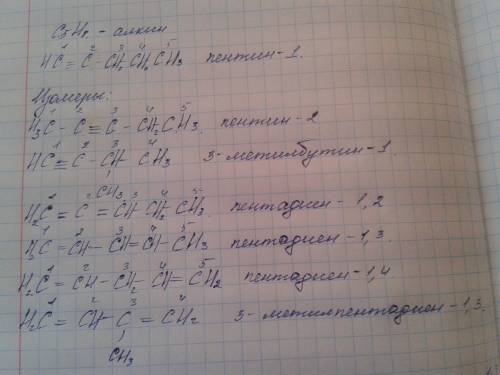 C₅H₈ - алкин
HC¹ ≡ C² - C³H₂ C⁴H₂ C⁵H₃ пентин-1.
Изомеры:
H₃C¹ - C² ≡ C³ - C⁴H₂ C⁵H₃. пентин-2
HC¹ ≡ C² - C³H C⁴H₃ 3-метилбутин-1.
CH₃
H₂C¹ = C² = C³H C⁴H₂ C⁵H₃. пентадиен-1,2
H₃C¹ = C²H - C³H = C⁴H - C⁵H₃ пентадиен-1,3
H₂C¹ = C²H - C³H₂ - C⁴H = C⁵H₂ пентадиен-1,4
H₂C¹ = C²H - C³ = C⁴H₂ 3-метилпентадиен-1,3.
CH₃